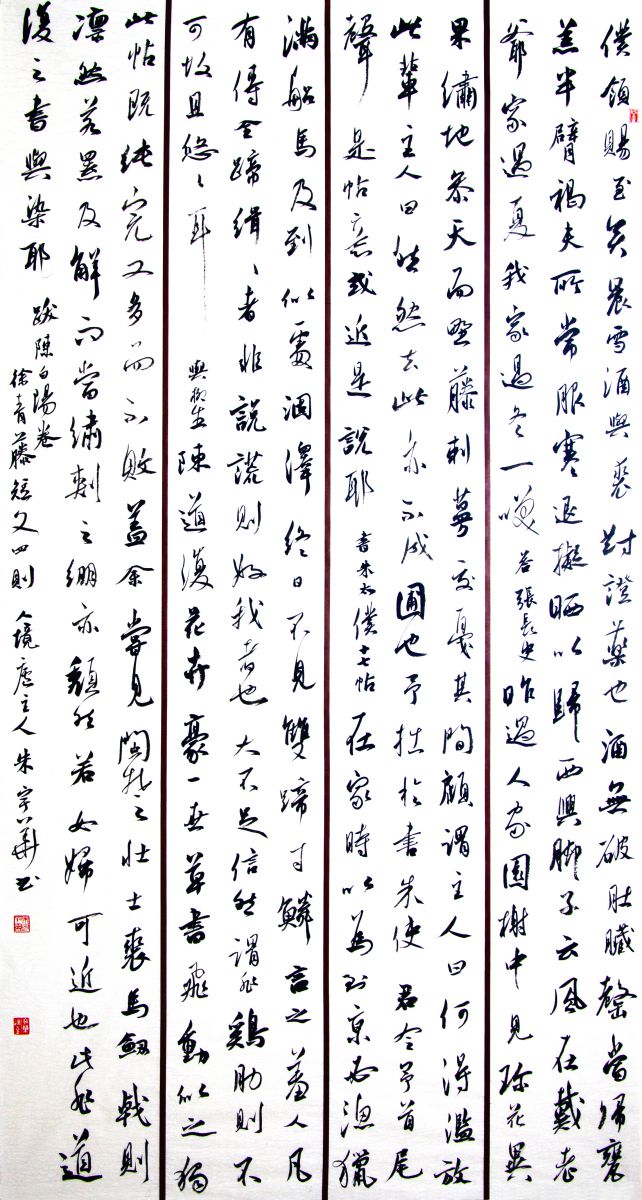 僕領賜至矣晨雪酒與裘對證藥也酒無破肚臟罄當歸甕
羔半臂褐夫所常服寒退擬晒以歸西興腳子云風在戴老
爺家過夏我家過冬一笑 答張長史 昨過人家園榭中見珍花異
果繡地參天而野藤刺蔓交戛其間顧謂主人曰何得濫放
此輩主人曰然然去此亦不成圃也予拙於書朱使君令予首尾
聲是帖意或近是說耶 書朱太僕十七帖 在家時以為到京必漁獵
滿船馬及到似處涸澤終日不見雙蹄寸鱗言之羞人凡
有傳全蹄緝〻者非說謊則好我者也大不足信然謂非鷄肋則不
可故且悠〻耳 與柳生 陳道復花卉豪一世草書飛動似之獨
此帖既純完又多而不敗蓋余嘗見閩楚之壯士裘馬劍戟則
凛然若羆及解而當繡刺之繃亦頹然若女婦可近也此非道
復之書與染耶 跋陳白陽卷
徐青藤短文四則 人境廬主人朱宇華書